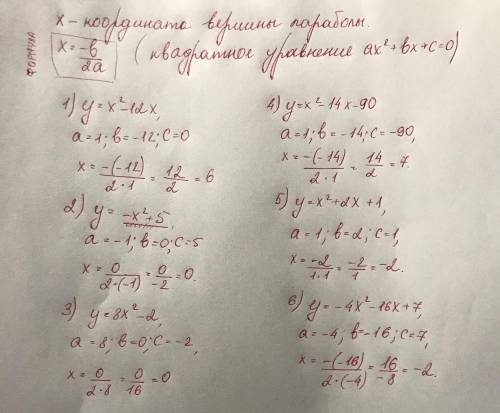 x - координата вершины параболы.
ФОРМУЛА
x = -b/2a ( квадратное уравнение ax² + bx + c = 0)
1) y = x² - 12x,
a = 1; b = -12; c = 0
x = -(-12)/2·1 = 12/2 = 6
2) y = -x² + 5,
a = -1; b = 0; c = 5
x = 0/2·(-1) = 0/-2 = 0.
3) y = 8x² - 2,
a = 8; b = 0; c = -2,
x = 0/2·8 = 0/16 = 0
4) y = x² - 14x - 90
a = 1; b = -14; c = -90,
x = -(-14)/2·1 = 14/2 = 7.
5) y = x² + 2x + 1,
a = 1; b = 2; c = 1,
x = -2/1·1 = -2/1 = -2.
6) y = -4x² - 16x + 7,
a = -4; b = -16; c = 7,
x = -(-16)/2·(-4) = 16/-8 = -2.